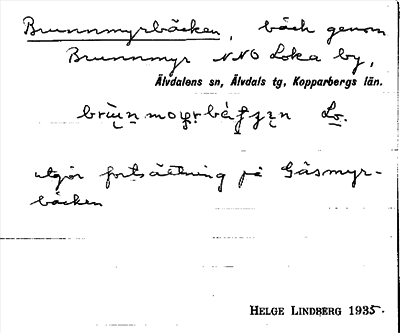 Brunnmyrbäcken, bäck genom
Brunnmyr NNO Loka by,
Älvdalens sn, Älvdals tg, Kopparbergs län.
Lo.
utgör fortsättning på Gåsmyr-
bäcken
HELGE LINDBERG 1935.